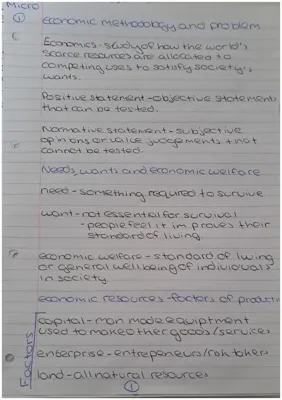 Micro
①
economic methodology and problem
Economics - study of how the world's
scarce resources are allocated to
competing uses to satisfy society's
wants.
Positive statement - objective statements
that can be tested.
Normative statement - subjective
opinions or value judgements + not
cannot be tested.
Needs, wants and economic welfare
need - something required to survive
want - not essential for survival
- people feel it improves their
standard of living
economic welfare - standard of living
or general wellbeing of individuals
in society.
economic resources - factors of producti
Factors
capital - man made equiptment
used to make other goods/services
enterprise - entrepeneurs/risk takers
land - all natural resources
①